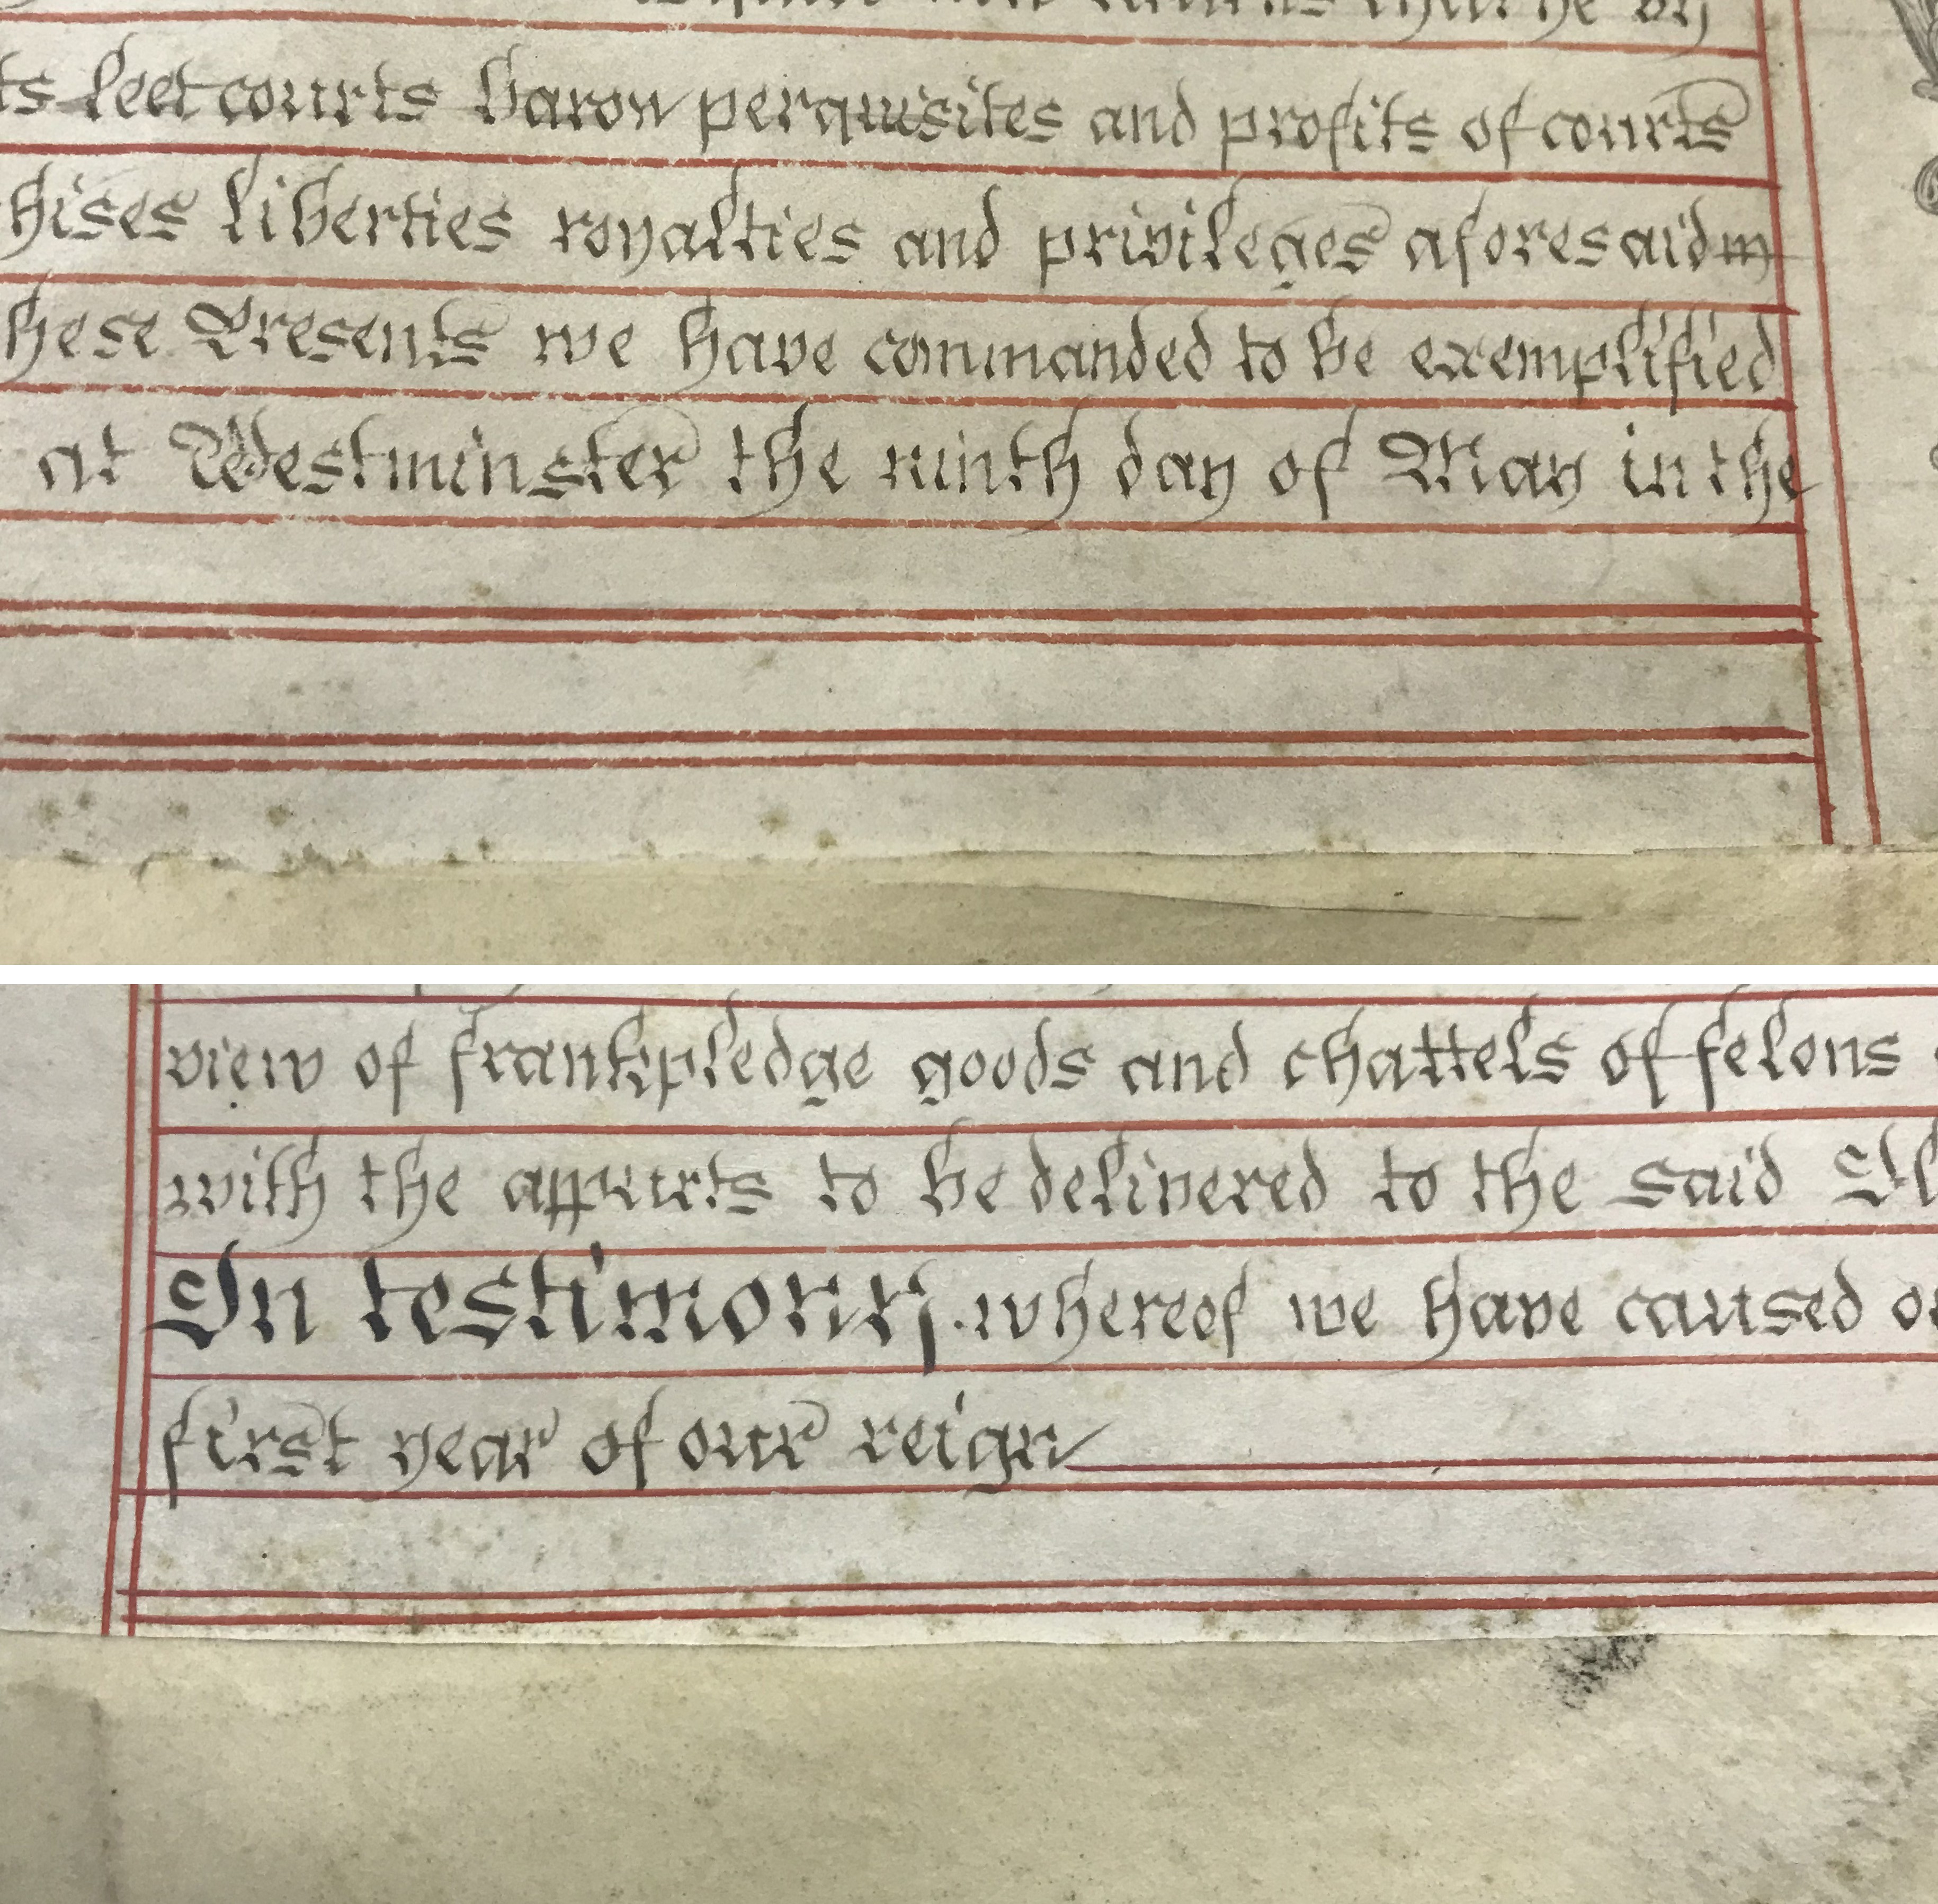 that he by
ts leet courts baron perquisites and profits of courts
hises liberties royalties and privileges aforesaid
hese Presents we have commanded to be exemplified
at Westminster the ninth day of May in the
view of frankpledge goods and chattels of felons
with the appurts to be delivered to the said
In testimony whereof we have caused
first year of our reign